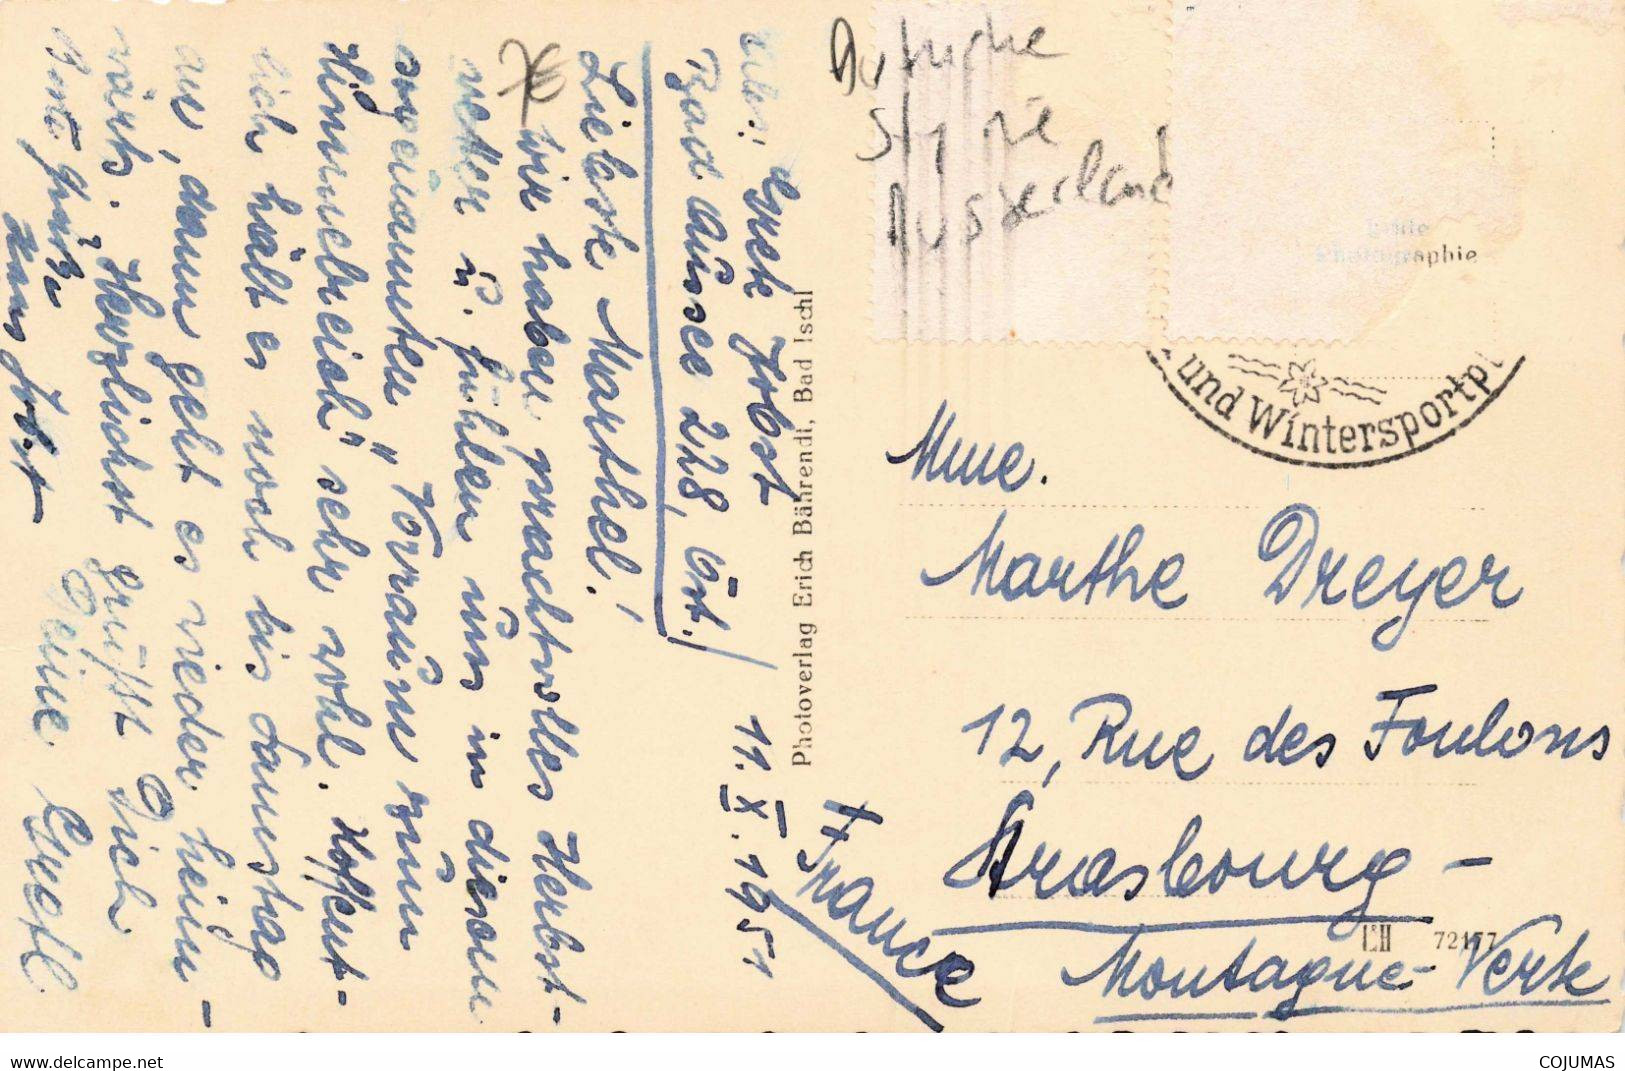 Abs.: Gretl Jobst
Bad Aussee 228, Öst./
11.X.1951
Liebste Marthel!
Wir haben prachtvolles Herbst-
wetter u. fühlen uns in diesem
sogenannten „Vorraum zum
Himmelreich" sehr wohl. Hoffent-
lich hält es noch bis Samstag
an, dann geht es wieder heim-
wärts. Herzlichst grüßt Dich
Deine Gretl
Hans Jobst
Photoverlag Erich Bährendt, Bad Ischl
Autriche
Styrie
Ausserland
Echte
Photographie
und Wintersportpl
Mme.
Marthe Dreyer
12, Rue des Foulons
Strasbourg –
Montagne-Verte
France
72157
delcampe.net
COJUMAS